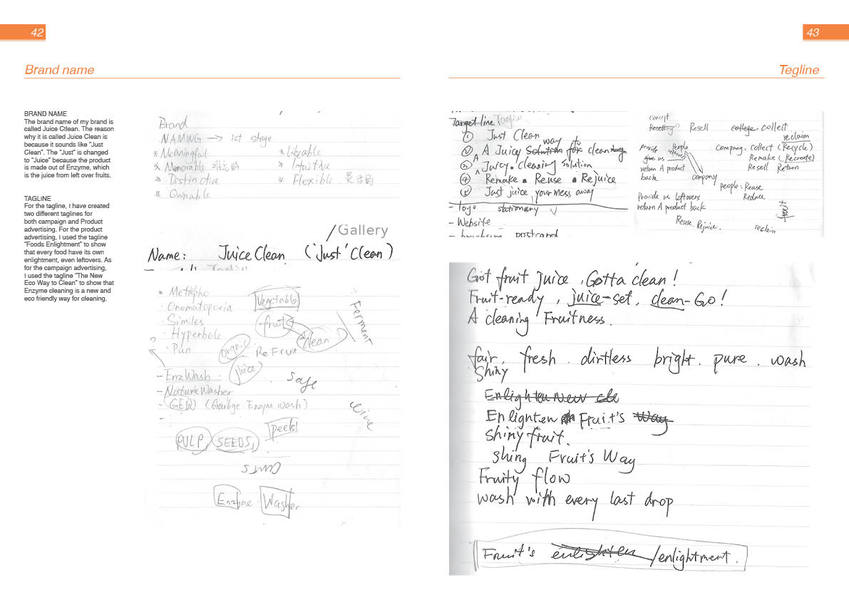 42
Brand name
BRAND NAME
The brand name of my brand is
called Juice Ctlean. The reason
why it is called Juice Clean is
because it sounds like "Just
Clean". The "Just" is changed
to "Juice" because the product
is made out of Enzyme, which
is the juice from over fruits.
TAGLINE
For the tagline, i have created
two different taglines for
both campaign and Product
advertising. For the product
advertising, i used the tagline
"Foods Enlightment" to show
that every food have its own
enlightment, even leftovers. As
for the campaign advertising,
i used the tagline "The New
Eco Way to Clean" to show that
Enzyme cleaning is a new and
eco friendly way for cleaning.
Brand
NAMING → 1st stage
* Meaningful
* Likeable
* Memorable
* Distinctive
* Flexible
* Ownable
/Gallery
Name: JuiceClean ('Just' Clean)
• Metapho
• Onomatopoeia
• Similes
• Hyperbole
• Pun
Vegetable
fruit
clean
Ferment
ReFruit
Juice
Safe
?
- EnzWash
- NatureWasher
- GEW (Garbage Enzym Wash)
PULP, SEEDS,
peel
Enzyme Washer
43
Tegline
Target line
① Just Clean
way to
② A Juicy Solution for cleaning
③ A Juicy Cleaning solution
④ Remake • Reuse • Rejuice
⑤ Just juice your mess away
- Logo stationary
- Website
postcard
concept
Resell
college, collect
reclaim
company, collect (Recycle)
Remake (Recreate)
Resell Return
give us
return A product
back
company
people: Reuse
Reduce
Provide us leftovers
return A product back
Reuse Rejuice.
reclaim
Got fruit Juice, Gotta clean!
Fruit-ready, juice-set, clean-Go!
A cleaning Fruitness.
fair. fresh. dirtless bright. pure. wash
Shiny
Enlighten New
Enlighten Fruit's Way
Shiny fruit.
Shing Fruit's Way
Fruity flow
wash with every last drop
Fruit's enlighten /enlightment.